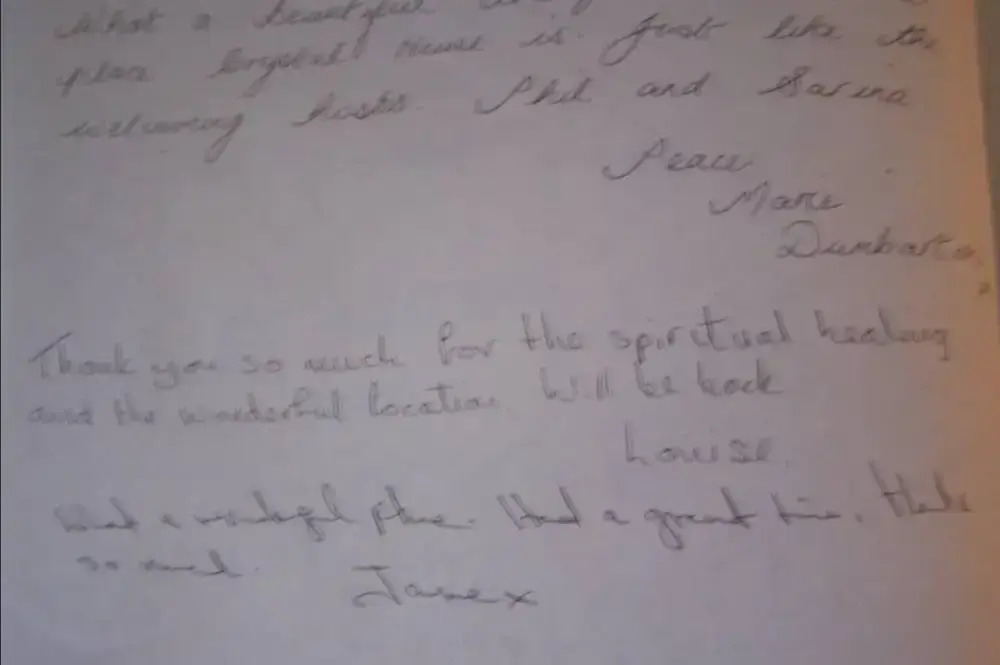 What a beautiful
place Crystal House is. Just like the
welcoming hosts. Phil and Sarina
Peace
Marie
Dumbarto
Thank you so much for the spiritual healing
and the wonderful location. Will be back
Louise.
What a wonderful place. Had a great time. Thanks
so much.
Jane x